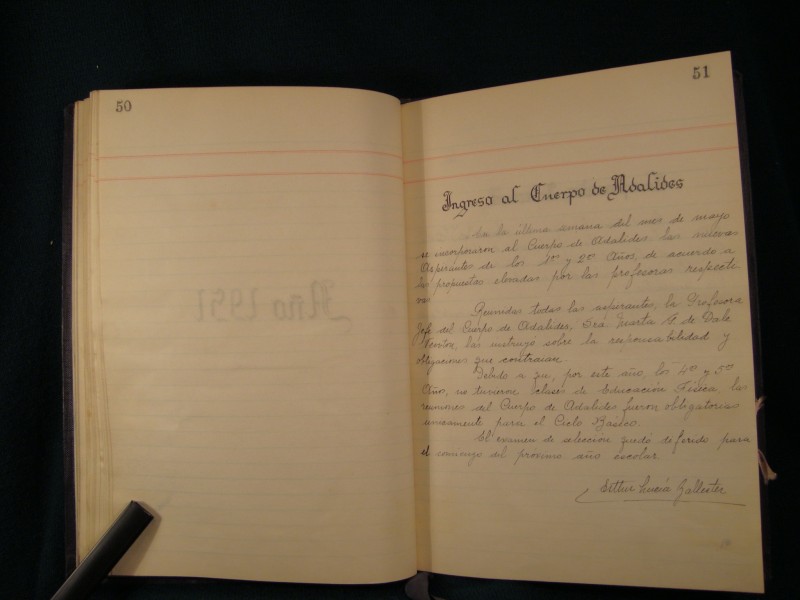 50
Año 1951
51
Ingreso al Cuerpo de Adalides
En la última semana del mes de mayo
se incorporaron al Cuerpo de Adalides las nuevas
Aspirantes de los 1os y 2os Años, de acuerdo a
las propuestas elevadas por las profesoras respecti-
vas.
Reunidas todas las aspirantes, la Profesora
Jefe del Cuerpo de Adalides, Sra. Marta G. de Dale
las instruyó sobre la responsabilidad y
obligaciones que contraían.
Debido a que, por este año, los 4os y 5os
Años, no tuvieron clases de Educación Física las
reuniones del Cuerpo de Adalides fueron obligatorias
únicamente para el Ciclo Básico.
El examen de selección quedó diferido para
el comienzo del próximo año escolar
Lucía Ballester